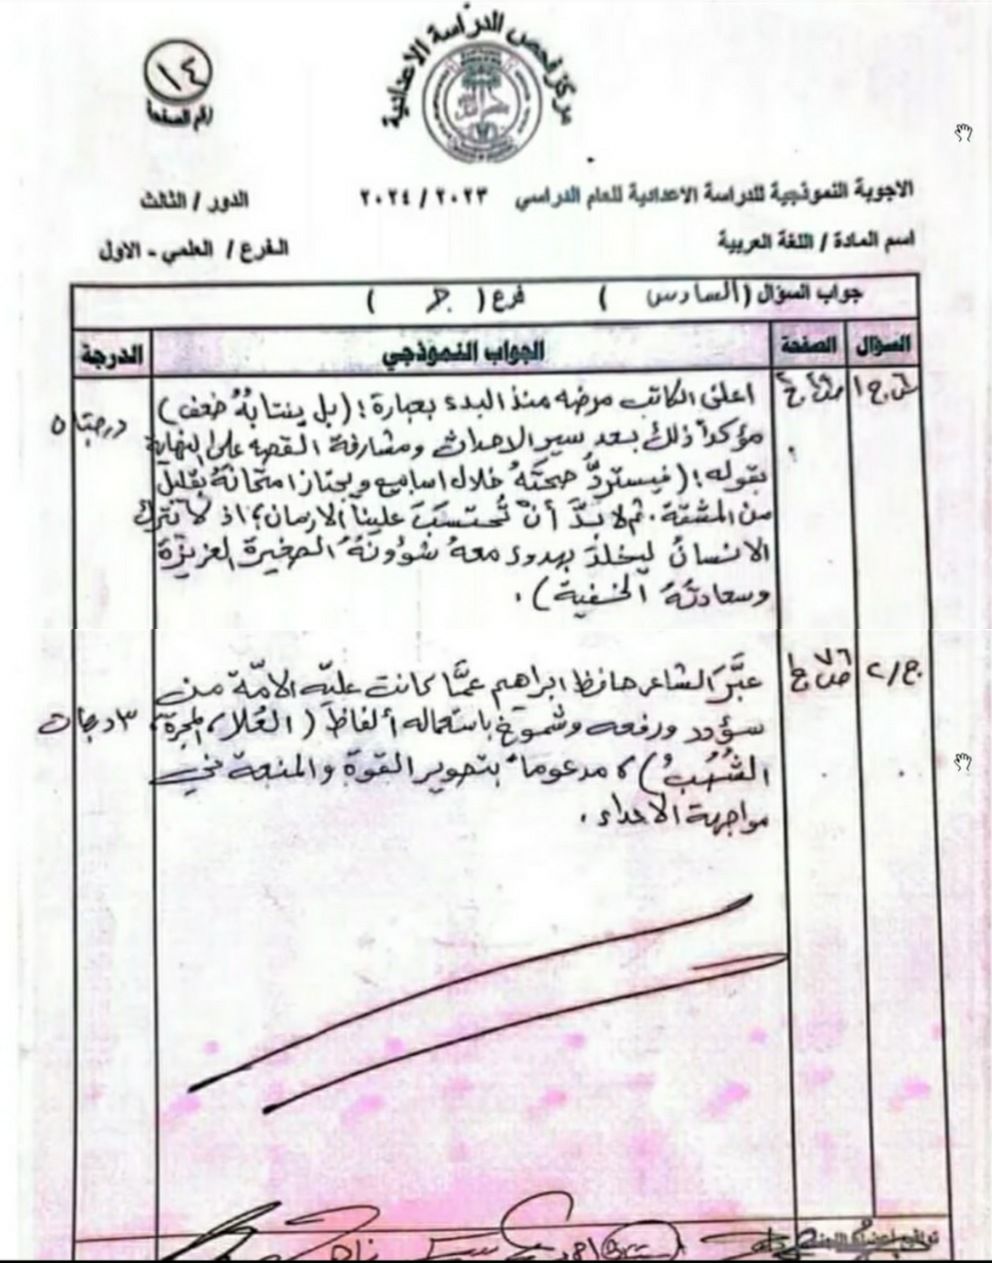 مركز فحص الدراسة الاعدادية
١٤
رقم الصفحة
الاجوبة النموذجية للدراسة الاعدادية للعام الدراسي ٢٠٢٣ / ٢٠٢٤
الدور / الثالث
اسم المادة / اللغة العربية
الفرع / العلمي - الاول
جواب السؤال (السادس) فرع ( جـ )
السؤال الصفحة الجواب النموذجي الدرجة
اعلن الكاتب مرضه منذ البدء بعبارة: (بل ينتابهُ ضعف) درجتان
مؤكداً ذلك بعد سير الاحداث ومشارفة القصة على النهاية
بقوله: (فيستردُّ صحتهُ خلال اسابيع ويجتاز امتحانهُ بقليل
من المشقة. ثم لا بدَّ أنْ تُحتسبَ علينا الازمان؛ اذ لا تترك
الانسانُ ليخلدَ بهدوء معهُ شؤونهُ الصغيرة العزيزة
وسعادتهُ الخفية).
ج/٢ ص٧٦ عبَّر الشاعر حافظ ابراهيم عمَّا كانت عليه الامّة من
سؤود ورفعه وشموخ باستعماله ألفاظ (العُلا، المجرة، ٣ درجات
الشُهُبُ)، مدعوماً بتصوير القوة والمنعة في
مواجهة الاعداء.
توقيع اعضاء اللجنة